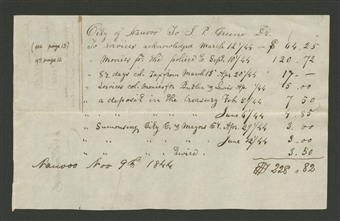 City of Nauvoo To J. P. Greene Dr.
(see page 13)
To services acknowledged March 12/44 — $ 64.25
47 page 12
" Monies for the police to Sept. 10/44 120.72
" 87 days col. Taxes from March 13 Apr. 20/44 17 —
" Services col. monies for & 5.00
" a deposit in the Treasury Feb. 5/44 7 50
" " " " " June 6/44 1.85
" Sumonsing City C. & Mayors Ct. Apr. 29/44 3.00
" " " " " June 12/44 3.00
" " " " " 3.50
Nauvoo Nov 9th 1844 $ 228.82